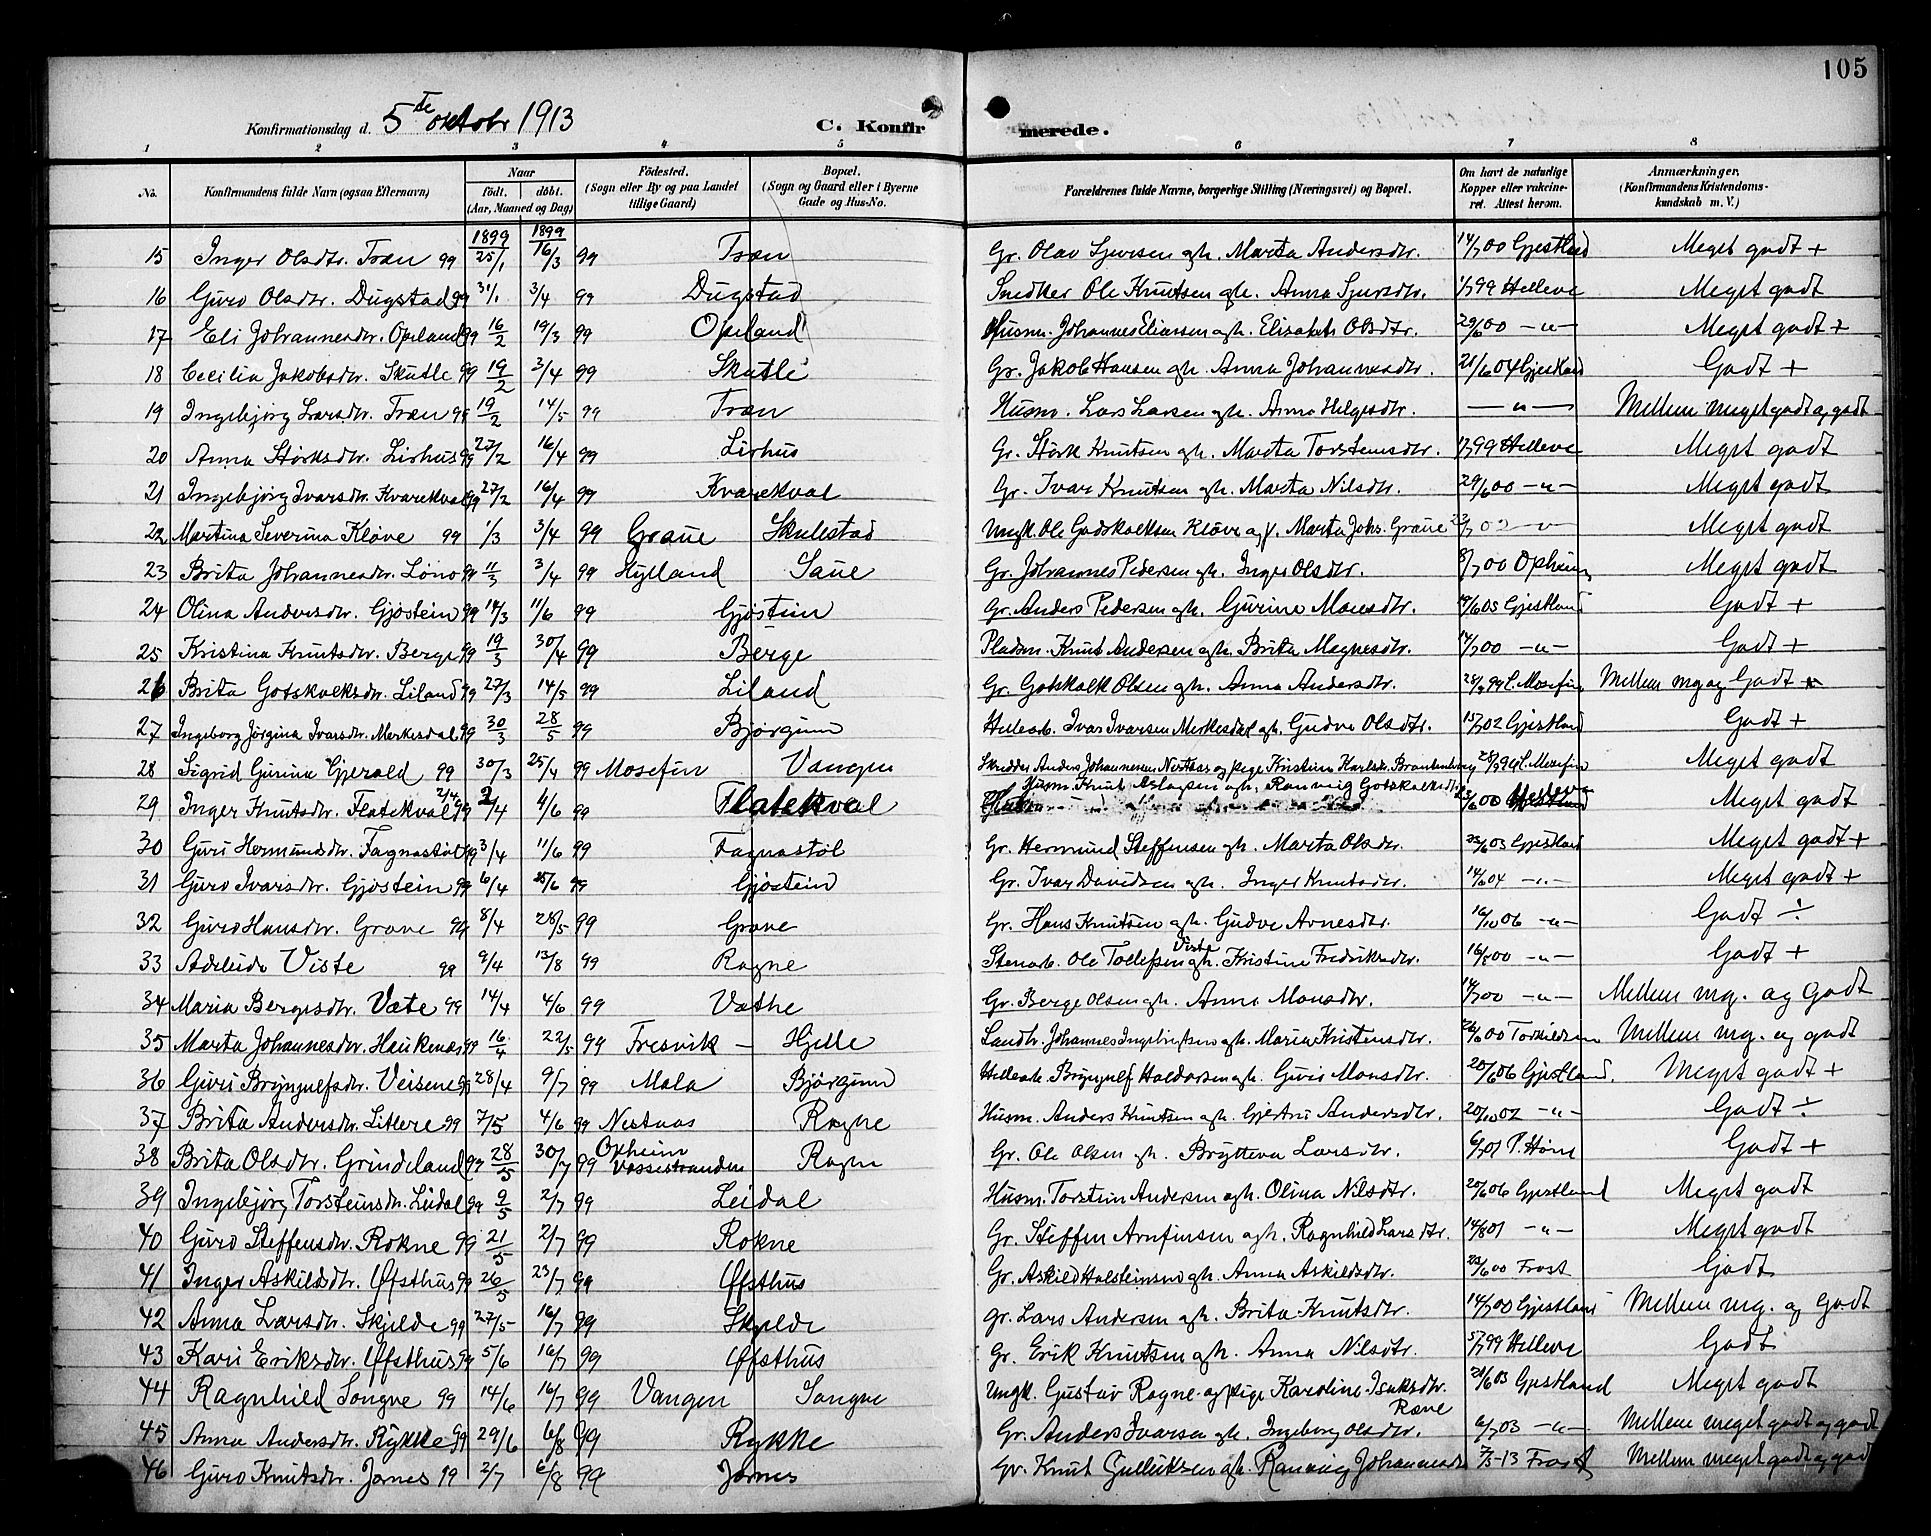 105
Konfirmationsdag d. 5te oktobr 1913 C. Konfirmerede.
1 2 3 4 5 6 7 8
No. Konfirmandens fulde Navn (ogsaa Efternavn) Naar født. døbt. (Aar, Maaned og Dag) Fødested. (Sogn eller By og paa Landet tillige Gaard) Bopæl. (Sogn og Gaard eller i Byerne Gade og Hus-No. Forældrenes fulde Navne, borgerlige Stilling (Næringsvei) og Bopæl. Om havt de naturlige Kopper eller vakcineret. Attest herom. Anmærkninger. (Konfirmandens Kristendomskundskab m. V.)
15 Inger Olsdtr. Træn 99 1899 25/1 1899 16/3 99 Træn Gr. Olav Sjursen ogh. Marta Andersdtr. 14/7 00 Gjestland Meget godt +
16 Guro Olsdtr. Dugstad 99 31/1 3/4 99 Dugstad Snedker Ole Knutsen ogh. Anna Sjursdtr. 1/7 99 Helleve Meget godt
17 Eli Johannesdtr. Opeland 99 16/2 19/3 99 Opeland Husm. Johannes Eliassen ogh. Elisabet Olsdtr. 29/6 00 -"- Meget godt +
18 Cecilia Jakobsdtr. Skutle 99 19/2 3/4 99 Skutle Gr. Jakob Hansen ogh. Anna Johannesdtr. 21/6 04 Gjestland Godt +
19 Ingebjørg Larsdtr. Træn 99 19/2 14/5 99 Træn Husm. Lars Larsen ogh. Anna Helgesdtr. -"- Mellem meget godt og godt
20 Anna Størksdtr. Lirhus 99 27/2 16/4 99 Lirhus Gr. Størk Knutsen ogh. Marta Torsteinsdtr. 1/7 99 Helleve Meget godt
21 Ingebjørg Ivarsdtr. Kvarekval 99 27/2 16/4 99 Kvarekval Gr. Ivar Knutsen ogh. Marta Nilsdtr. 29/6 00 -"- Meget godt
22 Martina Severina Kløve 99 1/3 3/4 99 Graue Skulestad Ungk. Ole Godskalksen Kløve og p. Marta Johs. Graue -"- Meget godt
23 Brita Johannesdtr. Løno 99 11/3 3/4 99 Hylland Saue Gr. Johannes Pedersen ogh. Inger Olsdtr. 8/7 00 Opheim Meget godt
24 Olina Andersdtr. Gjøstein 99 14/3 11/6 99 Gjøstein Gr. Anders Pedersen ogh. Gurine Monsdtr. 19/6 05 Gjestland Godt +
25 Kristina Knutsdtr. Berge 99 19/3 30/4 99 Berge Pladsm. Knut Andersen ogh. Brita Magnesdtr. 14/7 00 -"- Godt +
26 Brita Gotskalksdtr. Liland 99 27/3 14/5 99 Liland Gr. Gotskalk Olsen ogh. Anna Andersdtr. L. Mosefin Mellem mg og Godt +
27 Ingeborg Jørgina Ivarsdtr. Merkesdal 99 30/3 28/5 99 Bjørgum Hellearb. Ivar Ivarsen Merkesdal ogh. Gudve Olsdtr. 15/7 02 Gjestland Godt +
28 Sigrid Gurina Gjerald 99 30/3 25/4 99 Mosefin Vangen Skrædder Anders Johannesen Nestaas og pige Kristine Karlsdr. Brandenborg L. Mosefin Meget godt
29 Inger Knutsdtr. Flatekval 99 2/4 4/6 99 Flatekval Husm. Knut Aslaksen ogh. Ranveig Gotskalksdtr. Meget godt
30 Guri Hermundsdtr. Fagnastøl 99 3/4 11/6 99 Fagnastøl Gr. Hermund Steffensen ogh. Marta Olsdtr. 25/6 03 Gjestland Meget godt +
31 Guro Ivarsdtr. Gjøstein 99 6/4 25/6 99 Gjøstein Gr. Ivar Davidsen ogh. Inger Knutsdtr. 14/6 04 -"- Meget godt +
32 Guro Hansdtr. Grove 99 8/4 28/5 99 Grove Gr. Hans Knutsen ogh. Gudve Arnesdtr. 16/10 06 -"- Godt ÷
33 Adeleide Viste 99 9/4 13/8 99 Rogne Stenarb. Ole Tollefsen Viste ogh. Kristine Fredriksdtr. 16/8 00 -"- Godt +
34 Maria Bergesdtr. Væte 99 14/4 4/6 99 Væthe Gr. Berge Olsen ogh. Anna Monsdtr. 14/7 00 -"- Mellem mg. og Godt
35 Marta Johannesdtr. Haukenæs 99 16/4 22/5 99 Fresvik - Hjelle Landh. Johannes Ingebrigtsen ogh. Maria Kristensdtr. 26/6 00 Torkildsen Mellem mg. og godt
36 Guri Brynjulfsdtr. Veisene 99 28/4 9/7 99 Mala Bjørgum Hellearb. Brynjulf Haldorsen ogh. Guri Monsdtr. 20/6 06 Gjestland. Meget godt +
37 Brita Andersdtr. Litlere 99 7/5 4/6 99 Nestaas Rogne Husm. Anders Knutsen ogh. Gjertrü Andersdtr. 20/10 02 -"- Godt ÷
38 Brita Olsdtr. Grindeland 99 28/5 30/7 99 Opheim Vossestranden Rogne Gr. Ole Olsen ogh. Brytteva Larsdtr. 6/7 01 P. Høne Godt +
39 Ingebjørg Torsteinsdtr. Leidal 99 9/5 2/7 99 Leidal Husm. Torstein Andersen ogh. Olina Nilsdtr. 20/6 06 Gjestland Meget godt
40 Guro Steffensdtr. Rokne 99 21/5 2/7 99 Rokne Gr. Steffen Arnfinsen ogh. Ragnhild Larsdtr. 14/8 01 -"- Meget godt
41 Inger Askildsdtr. Øfsthus 99 26/5 23/7 99 Øfsthus Gr. Askild Holsteinsen ogh. Anna Askildsdtr. 22/6 00 Frost Godt
42 Anna Larsdtr. Skjelde 99 27/5 16/7 99 Skjelde Gr. Lars Andersen ogh. Brita Knutsdtr. 14/7 00 Gjestland Mellem mg. og Godt
43 Kari Eriksdtr. Øfsthus 99 5/6 16/7 99 Øfsthus Gr. Erik Knutsen ogh. Anna Nilsdtr. 5/7 99 Helleve Godt
44 Ragnhild Songve 99 14/6 16/7 99 Vangen Songve Ungk. Gustav Rogne og pige Karoline Isaksdtr. Rene 21/6 03 Gjestland Meget godt
45 Anna Andersdtr. Rykke 99 29/6 6/8 99 Rykke Gr. Anders Ivarsen ogh. Ingeborg Olsdtr. 6/7 03 -"- Mellem meget godt og godt
46 Guro Knutsdtr. Jarnes 99 2/7 6/8 99 Jarnes Gr. Knut Gulliksen ogh. Ranveig Johannesdtr 7/5-13 Frost Mellem meget godt og godt